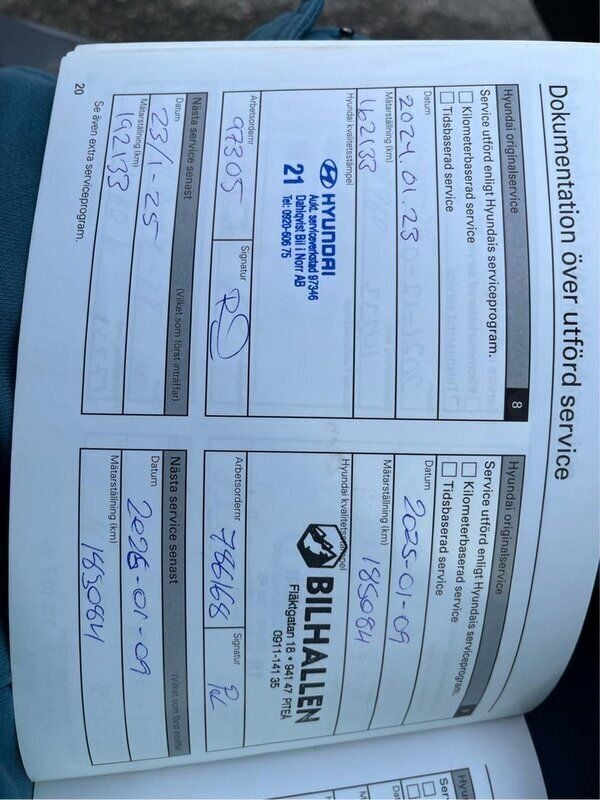 Dokumentation över utförd service
Hyundai originalservice 8
Service utförd enligt Hyundais serviceprogram.
Kilometerbaserad service
Tidsbaserad service
Datum
2024.01.23
Mätarställning (km)
162133
Hyundai kvalitetsstämpel
HYUNDAI
Aukt. serviceverkstad 97346
21 Dahlqvist Bil i Norr AB
Tel: 0920-606 75
Arbetsordernr Signatur
97305
Nästa service senast (Vilket som först inträffar)
Datum
23/1-25
Mätarställning (km)
192133
Se även extra serviceprogram.
20
Hyundai originalservice
Service utförd enligt Hyundais serviceprogram.
Kilometerbaserad service
Tidsbaserad service
Datum
2025-01-09
Mätarställning (km)
185084
Hyundai kvalitetsstämpel
BILHALLEN
Fläktgatan 18 • 941 47 PITEÅ
0911-141 35
Arbetsordernr Signatur
786168
Nästa service senast (Vilket som först
Datum
2026-01-09
Mätarställning (km)
Hyu
Ser